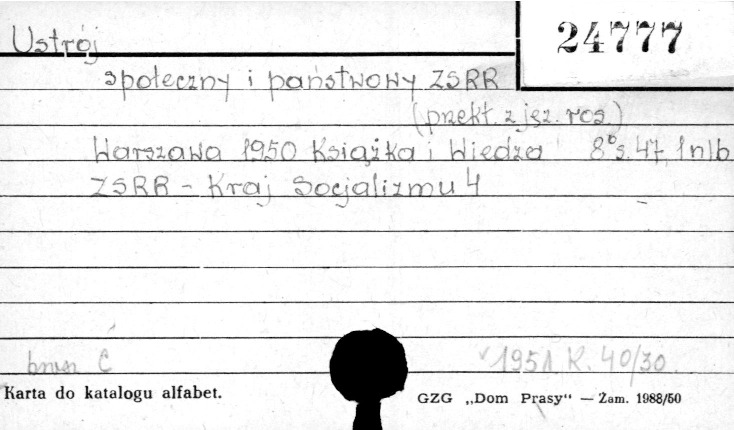 24777
Ustrój
społeczny i państwowy ZSRR
(przekł. z jęz. ros.)
Warszawa 1950 Książka i Wiedza 8° s. 47, 1 nlb
ZSRR - Kraj Socjalizmu 4
1951 K. 40/30.
Karta do katalogu alfabet.
GZG „Dom Prasy“ — Zam. 1988/50